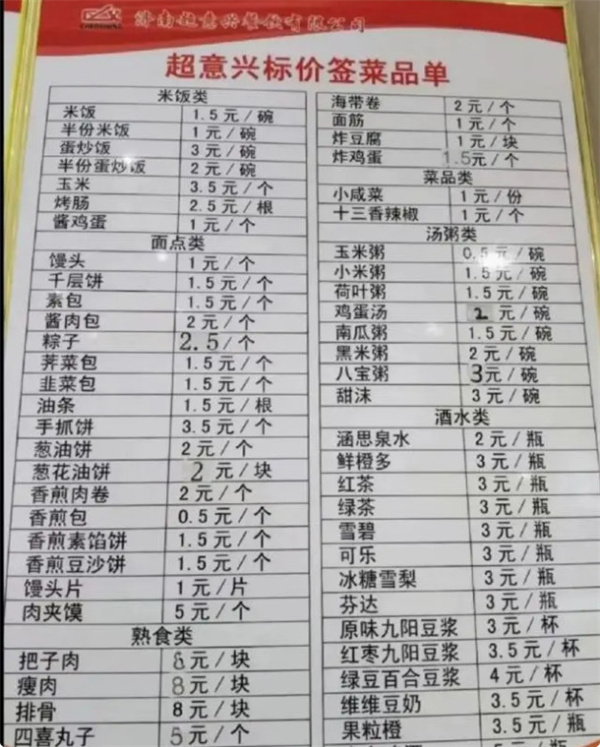 济南超意兴餐饮有限公司
超意兴标价签菜品单
米饭类
米饭 1.5元/碗
半份米饭 1元/碗
蛋炒饭 3元/碗
半份蛋炒饭 2元/碗
玉米 3.5元/个
烤肠 2.5元/根
酱鸡蛋 1元/个
面点类
馒头 1元/个
千层饼 1.5元/个
素包 1.5元/个
酱肉包 2元/个
粽子 2.5/个
荠菜包 1.5元/个
韭菜包 1.5元/个
油条 1.5元/根
手抓饼 3.5元/个
葱油饼 2元/个
葱花油饼 2元/块
香煎肉卷 2元/个
香煎包 0.5元/个
香煎素馅饼 1.5元/个
香煎豆沙饼 1.5元/个
馒头片 1元/片
肉夹馍 5元/个
熟食类
把子肉 8元/块
瘦肉 8元/块
排骨 8元/块
四喜丸子 5元/个
海带卷 2元/个
面筋 1元/个
炸豆腐 1元/块
炸鸡蛋 1.5元/个
菜品类
小咸菜 1元/份
十三香辣椒 1元/个
汤粥类
玉米粥 0.5元/碗
小米粥 1.5元/碗
荷叶粥 1.5元/碗
鸡蛋汤 2元/碗
南瓜粥 1.5元/碗
黑米粥 2元/碗
八宝粥 3元/碗
甜沫 3元/碗
酒水类
涵思泉水 2元/瓶
鲜橙多 3元/瓶
红茶 3元/瓶
绿茶 3元/瓶
雪碧 3元/瓶
可乐 3元/瓶
冰糖雪梨 3元/瓶
芬达 3元/瓶
原味九阳豆浆 3元/杯
红枣九阳豆浆 3.5元/杯
绿豆百合豆浆 4元/杯
维维豆奶 3.5元/杯
果粒橙 3.5元/瓶